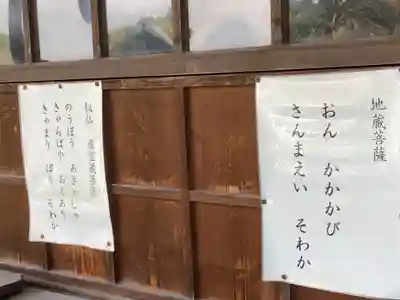 地蔵菩薩
おん かかかび
さんまえい そわか
秘仏 虚空蔵菩薩
のうぼう あきゃしゃ
きゃらばや おんあり
きゃまり ぼり そわか